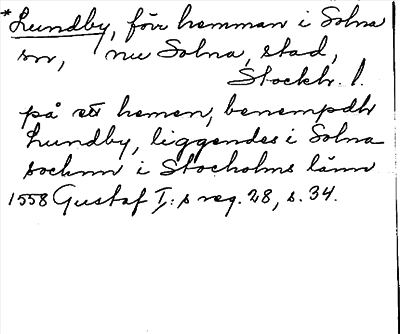 *Lundby, förr hemman i Solna
sn, nu Solna, stad,
Stockh. l.
på ett hemen, benempdh
Lundby, liggendes i Solna
sochnn i Stocholms länn
1558 Gustaf I:s reg. 28, s. 34.